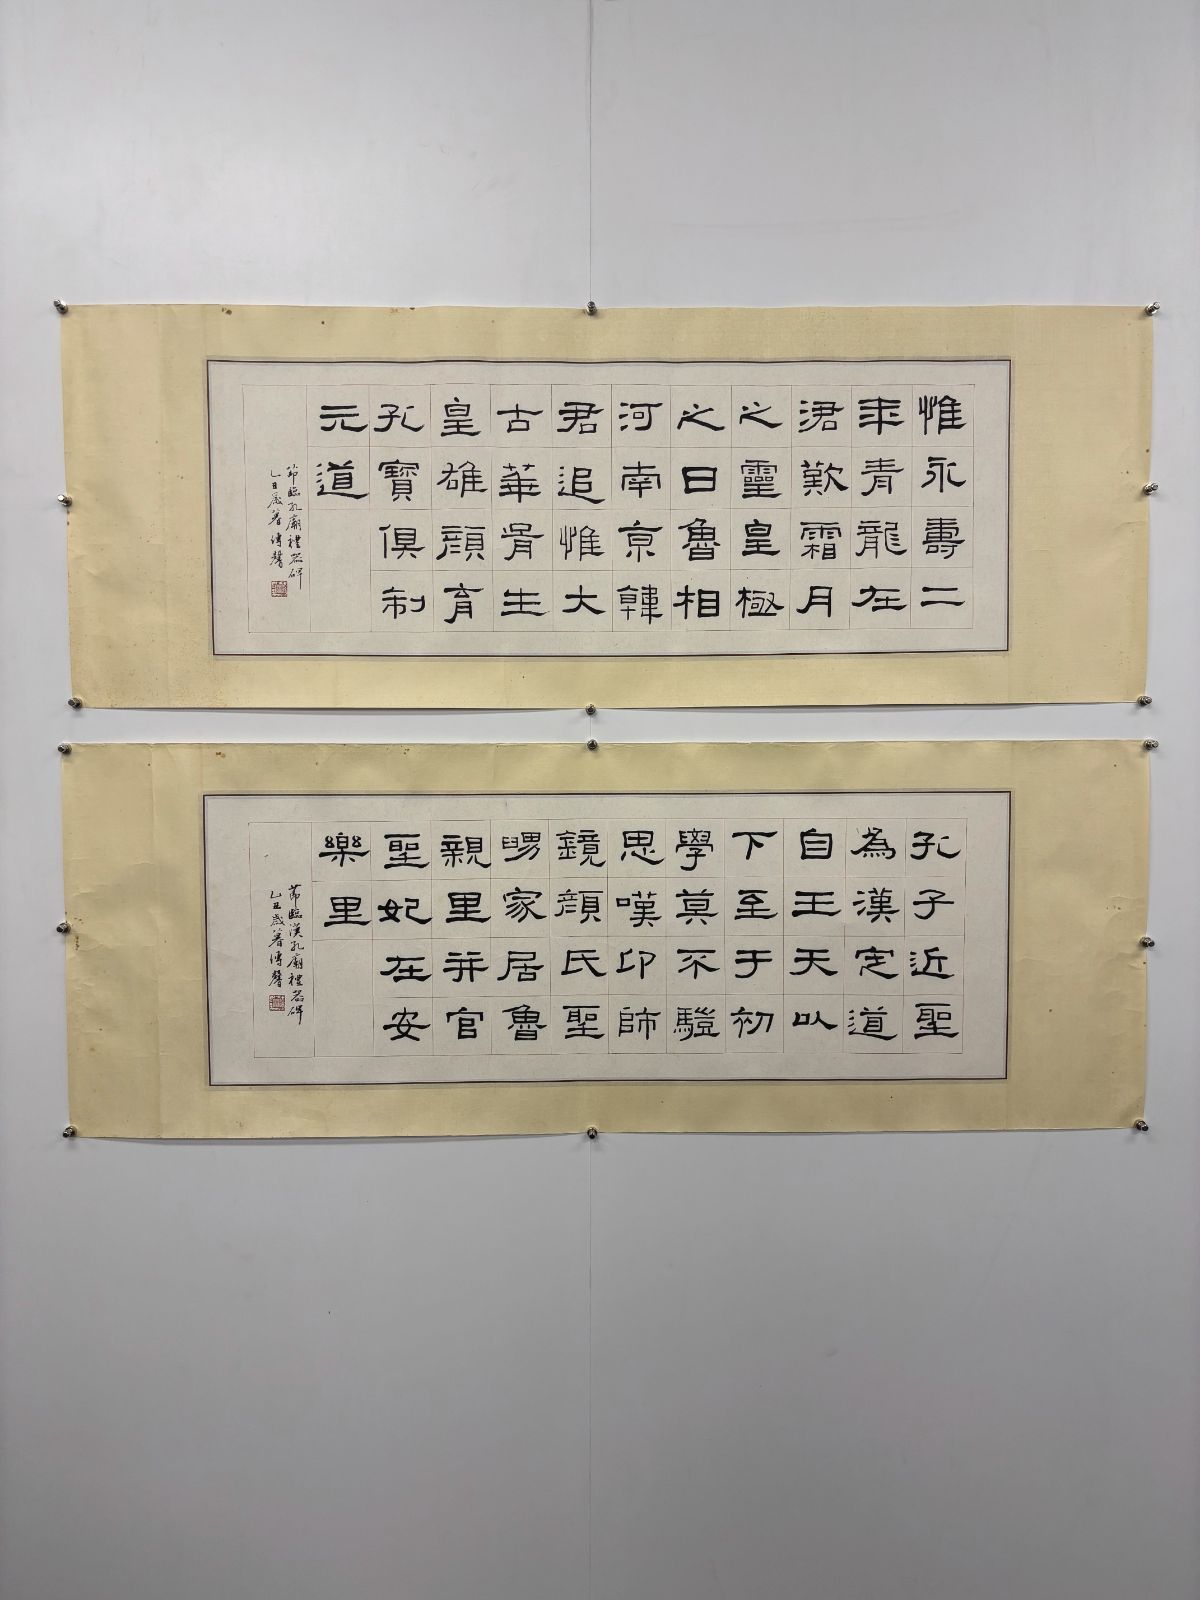 惟永壽二
年青龍在
涒歎霜月
之靈皇極
之日魯相
河南京韓
君追惟大
古華胥生
皇雄顏育
孔寶俱制
元道
節臨孔廟禮器碑
乙丑歲暮
孔子近聖
為漢定道
自王天以
下至于初
學莫不
思嘆卬師
鏡顏氏聖
舅家居魯
親里并官
聖妃在安
樂里
節臨漢孔廟禮器碑
乙丑歲暮